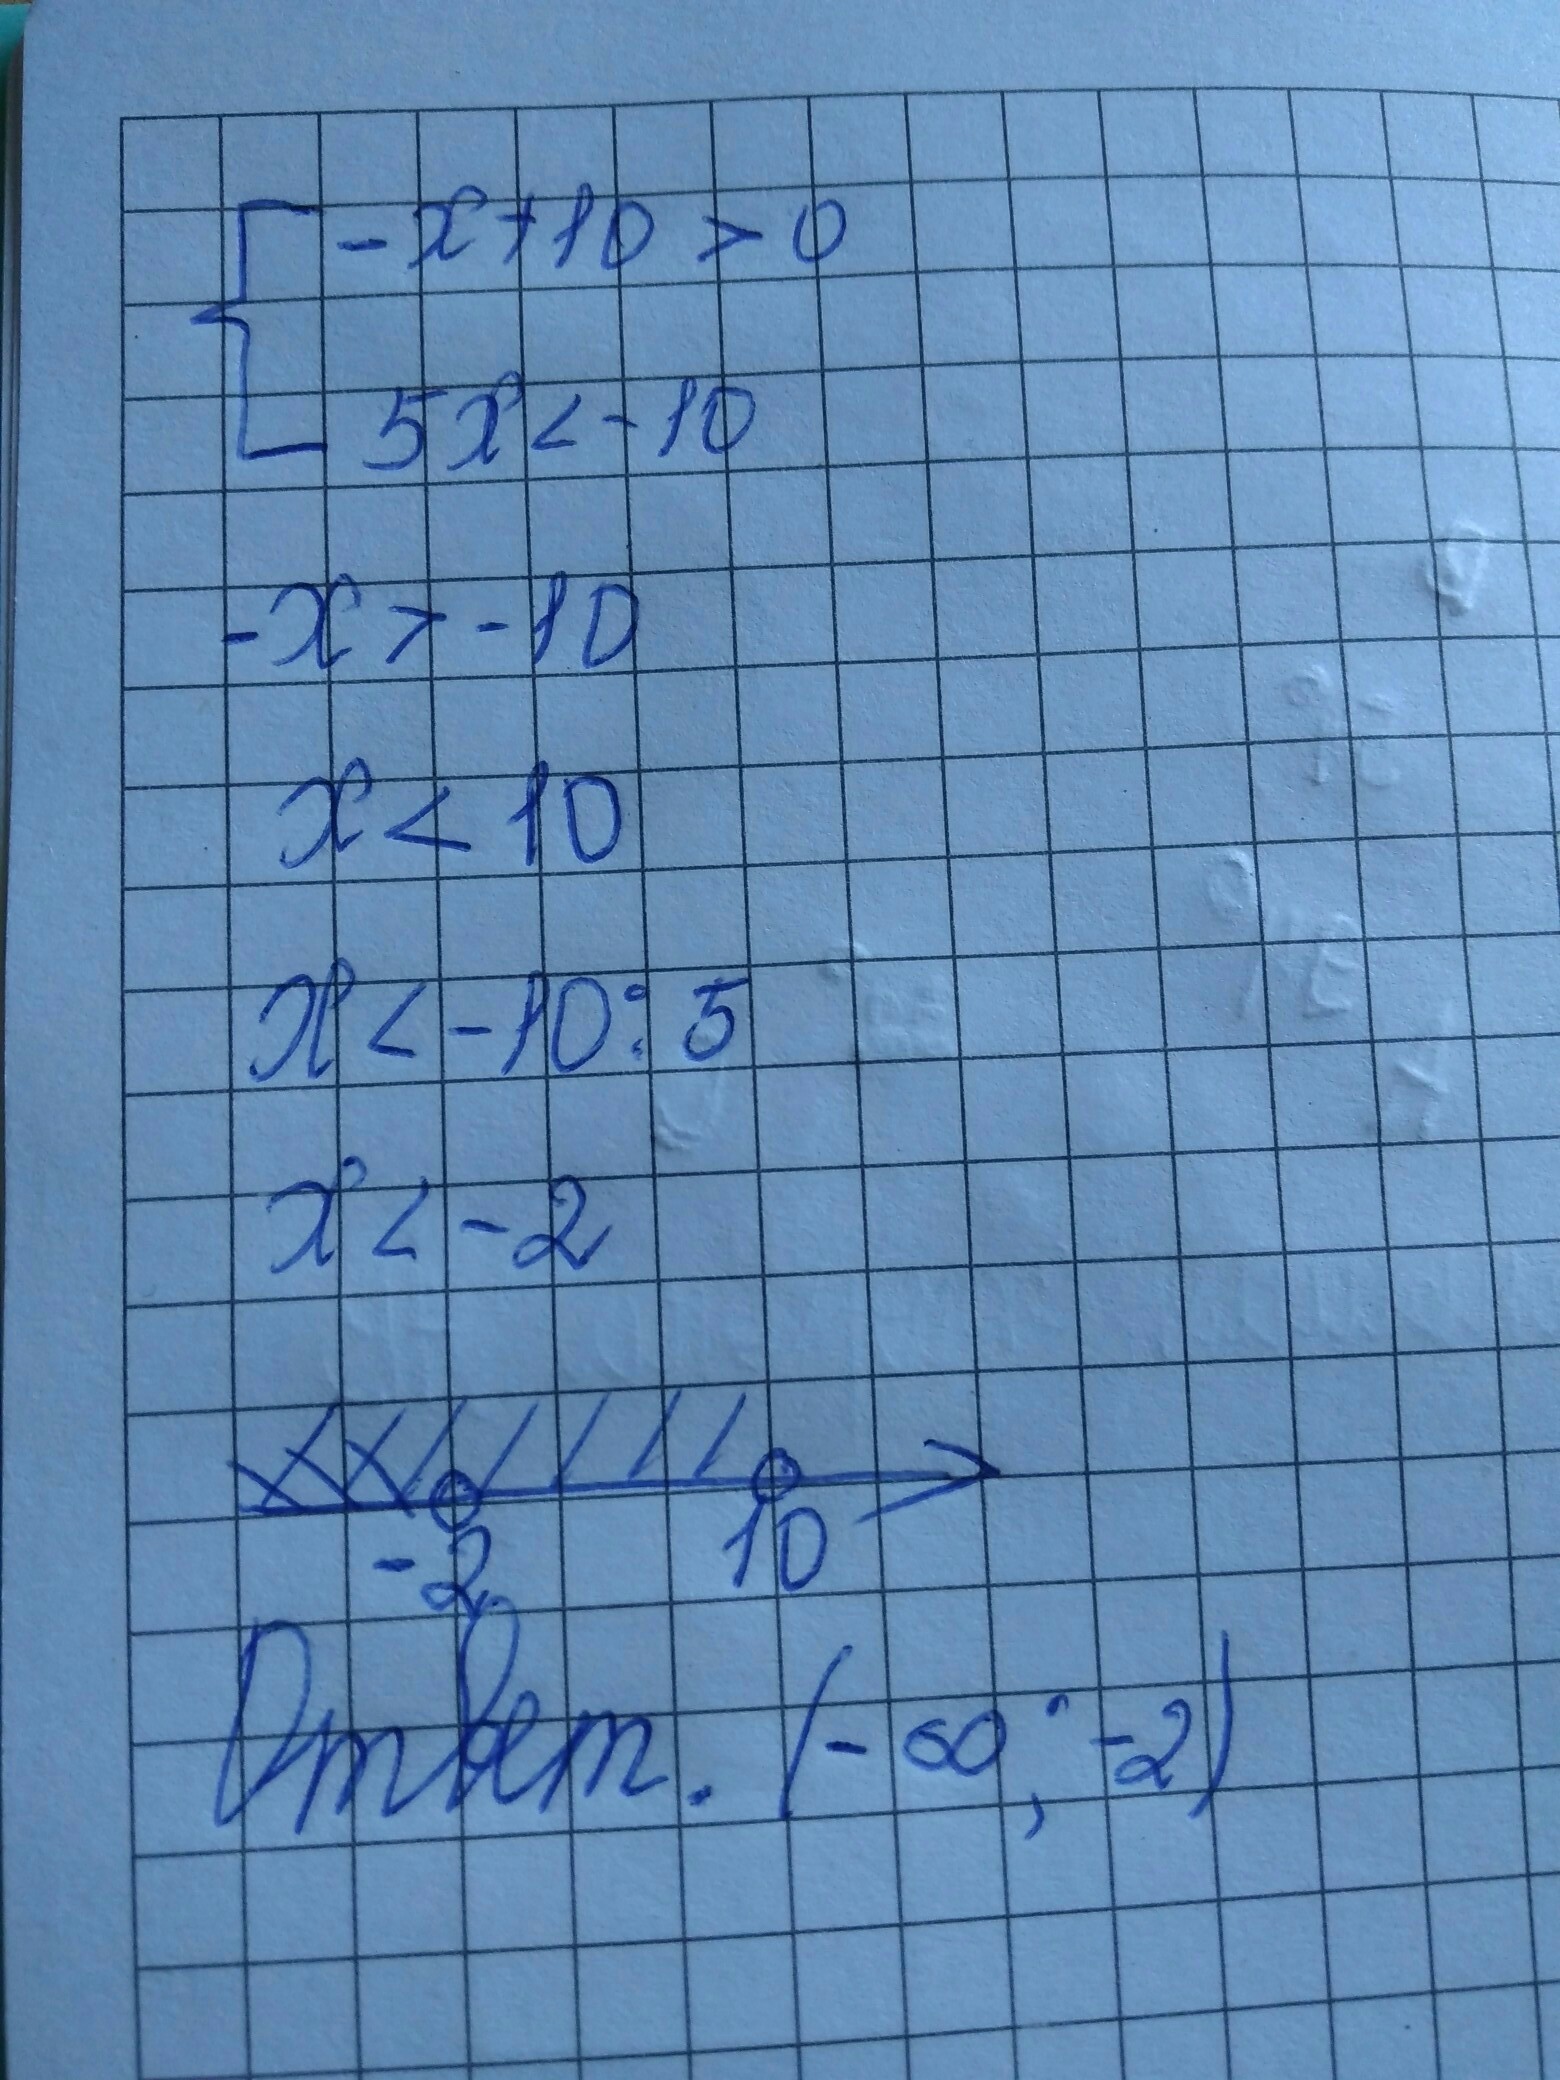 -x+10 > 0
5x < -10
-x > -10
x < 10
x < -10 : 5
x < -2
-2 10
Ответ. (-∞; -2)